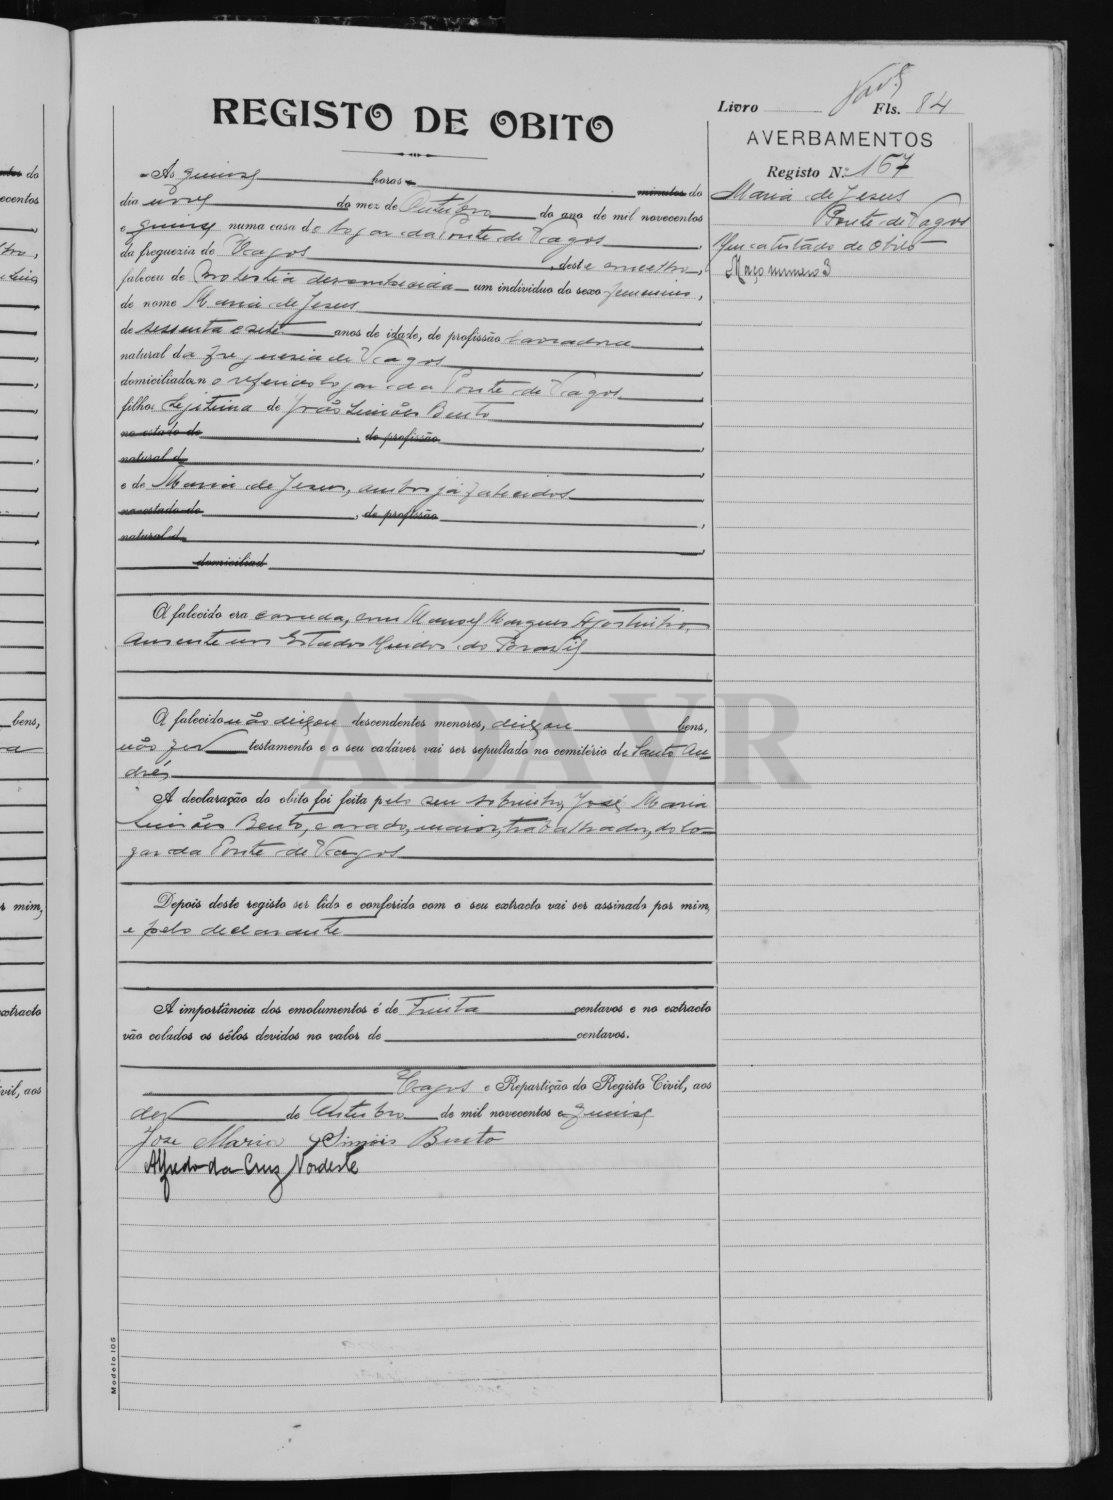 Livro Fls. 84
REGISTO DE OBITO
AVERBAMENTOS
Registo N.º 167
Maria de Jesus
Ponte de Vagos
Tem atestado de obito
Maço numero 3
Ás quinze horas minutos do
dia nove do mez de Outubro do ano de mil novecentos
e quinze numa casa do logar da Ponte de Vagos,
da freguezia de Vagos, deste concelho,
faleceu de molestia desconhecida um individuo do sexo femenino,
de nome Maria de Jesus,
de sessenta e sete anos de idade, de profissão lavradora,
natural da freguesia de Vagos,
domiciliada no referido logar da Ponte de Vagos,
filha legitima de João Simões Bento,
no estado de, de profissão,
natural d
e de Maria de Jesus, ambos já falecidos,
no estado de, de profissão,
natural d,
domiciliad
A falecida era casada, com Manoel Marques Agostinho,
ausente nos Estados Unidos do Brasil
A falecida não deixou descendentes menores, deixou bens,
não fez testamento e o seu cadáver vai ser sepultado no cemitério de Santo An-
dré,
A declaração do obito foi feita pelo seu sobrinho, José Maria
Simões Bento, casado, maior, trabalhador, do lo-
gar da Ponte de Vagos
Depois deste registo ser lido e conferido com o seu extracto vai ser assinado por mim,
e pelo declarante
A importância dos emolumentos é de trinta centavos e no extracto
vão colados os sêlos devidos no valor de centavos.
Vagos e Repartição do Registo Civil, aos
dez de Outubro de mil novecentos e quinze
Jose Maria Simois Bento
Alfredo da Cruz Nordeste
Modelo 105
ADAVR
do
ecentos
bens,
r mim,
extracto
ivil, aos